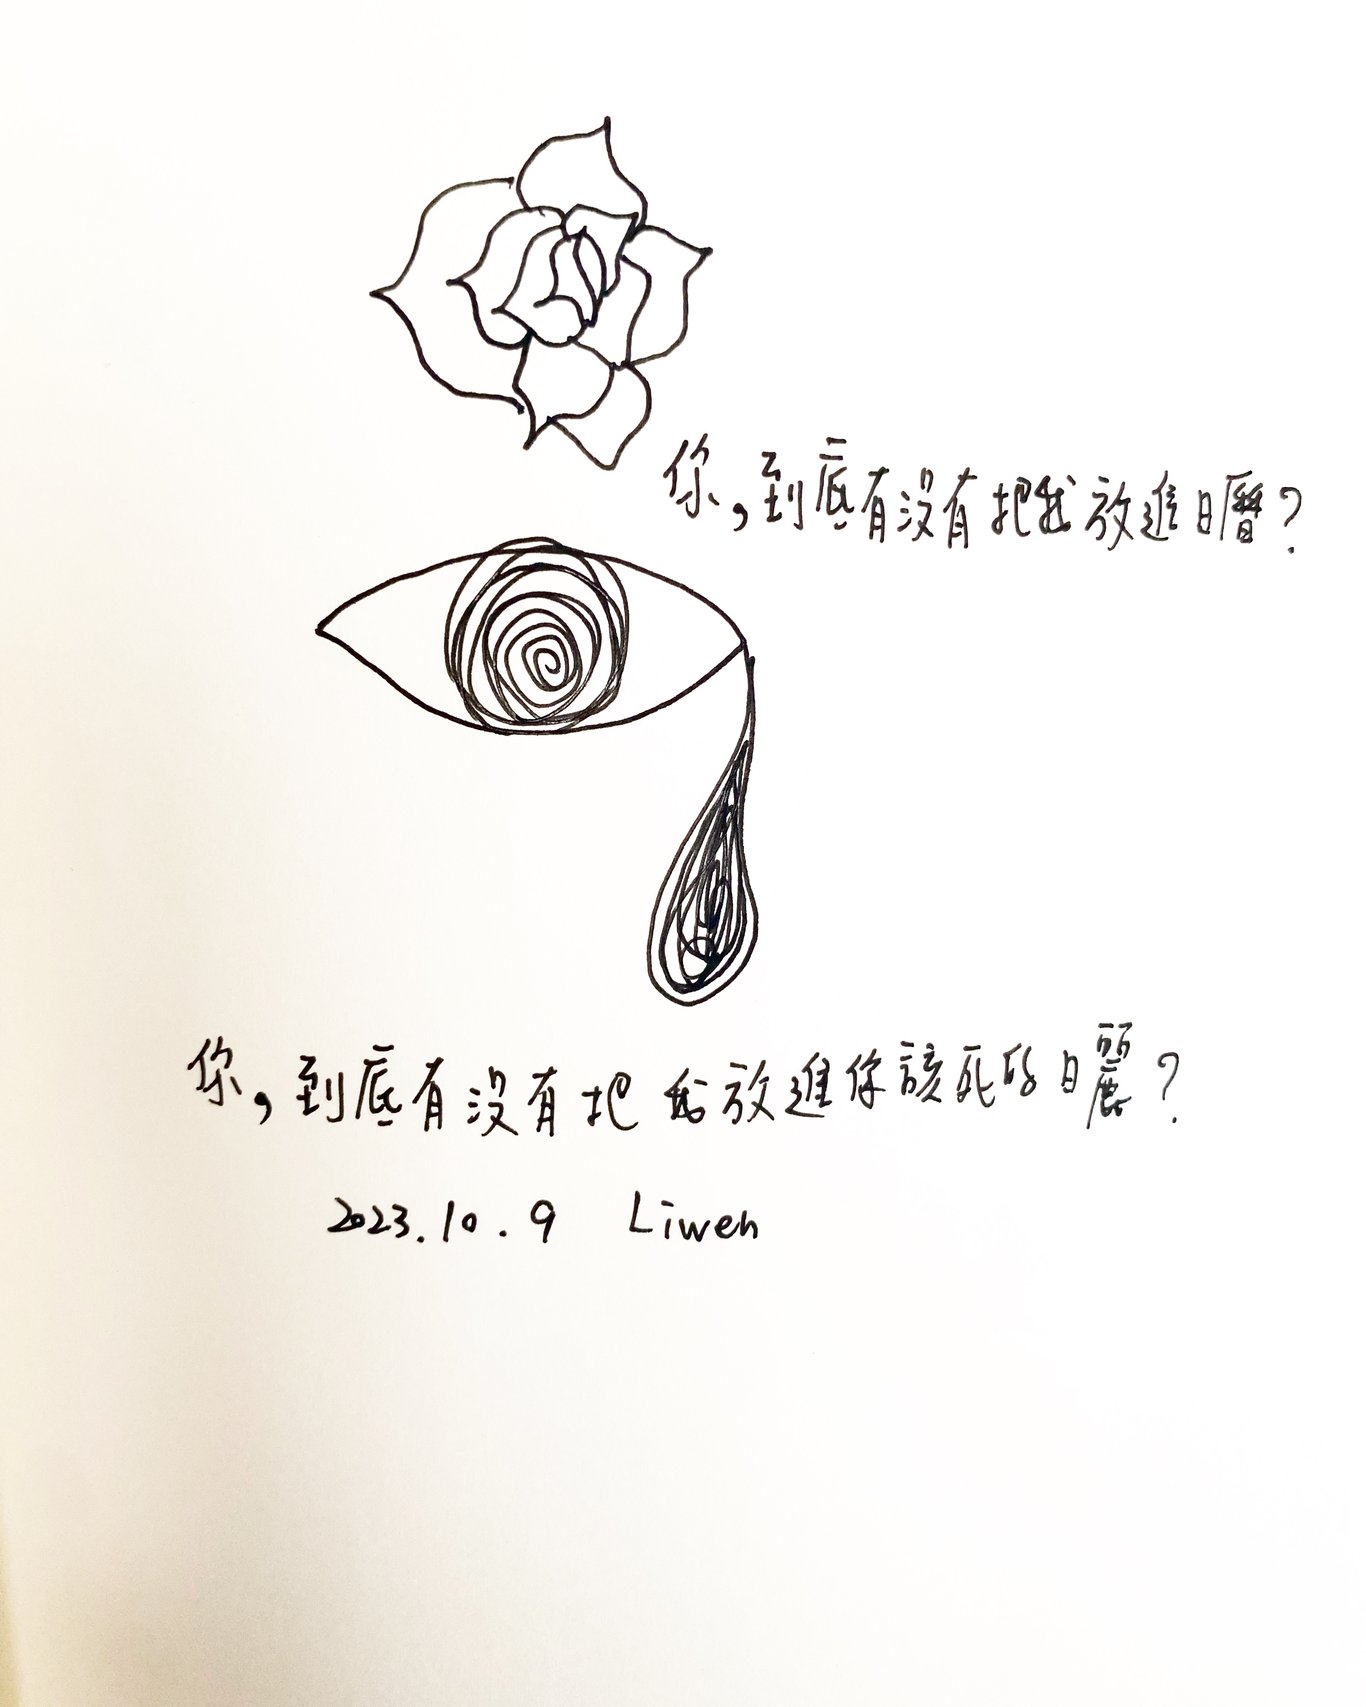 你,到底有沒有把我放進日曆?
你,到底有沒有把我放進你該死的日麗?
2023.10.9 Liwen